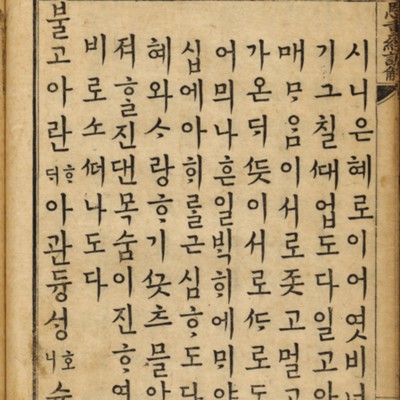 恩重經諺解
시니은혜로이어엿비너
기그칠ᄯᅢ업도다일고
매ᄆᆞ음이서로좃고멀고
가온ᄃᆡᄯᅳᆺ이서로ᄯᆞ로도
어믜나흔일ᄇᆡᆨ희에ᄆᆡ야
십에아ᄒᆡ를근심ᄒᆞ도다
혜와ᄉᆞ랑ᄒᆞ기ᄭᅳᆺ츠믈아
져ᄒᆞᆯ진댄목숨이진ᄒᆞ여
비로소ᄯᅥ나도다
불고아란ᄒᆞ더아관듕셩호니